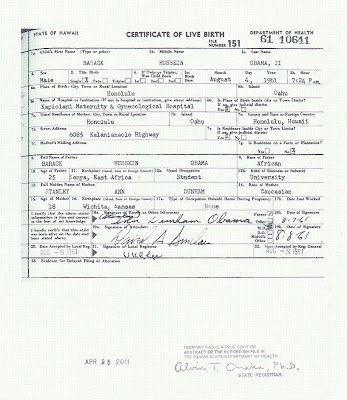 STATE OF HAWAII CERTIFICATE OF LIVE BIRTH DEPARTMENT OF HEALTH
FILE NUMBER 151 61 10641
1a. Child's First Name (Type or print) 1b. Middle Name 1c. Last Name
BARACK HUSSEIN OBAMA, II
2. Sex 3. This Birth 4. If Twin or Triplet, Was Child Born 5a. Birth Date Month Day Year 5b. Hour
Male Single Twin Triplet 1st 2nd 3rd August 4, 1961 7:24 P.M.
6a. Place of Birth: City, Town or Rural Location 6b. Island
Honolulu Oahu
6c. Name of Hospital or Institution (If not in hospital or institution, give street address) 6d. Is Place of Birth Inside City or Town Limits? If no, give judicial district
Kapiolani Maternity & Gynecological Hospital Yes No
7a. Usual Residence of Mother: City, Town or Rural Location 7b. Island 7c. County and State or Foreign Country
Honolulu Oahu Honolulu, Hawaii
7d. Street Address 7e. Is Residence Inside City or Town Limits? If no, give judicial district
6085 Kalanianaole Highway Yes No
7f. Mother's Mailing Address 7g. Is Residence on a Farm or Plantation?
Yes No
8. Full Name of Father 9. Race of Father
BARACK HUSSEIN OBAMA African
10. Age of Father 11. Birthplace (Island, State or Foreign Country) 12a. Usual Occupation 12b. Kind of Business or Industry
25 Kenya, East Africa Student University
13. Full Maiden Name of Mother 14. Race of Mother
STANLEY ANN DUNHAM Caucasian
15. Age of Mother 16. Birthplace (Island, State or Foreign Country) 17a. Type of Occupation Outside Home During Pregnancy 17b. Date Last Worked
18 Wichita, Kansas None
I certify that the above stated information is true and correct to the best of my knowledge. 18a. Signature of Parent or Other Informant Parent Other 18b. Date of Signature
Dunham Obama 8-7-61
I hereby certify that this child was born alive on the date and hour stated above. 19a. Signature of Attendant M.D. D.O. Midwife Other 19b. Date of Signature
8-8-61
20. Date Accepted by Local Reg. 21. Signature of Local Registrar 22. Date Accepted by Reg. General
AUG -8 1961 AUG -8 1961
23. Evidence for Delayed Filing or Alteration
APR 25 2011
I CERTIFY THIS IS A TRUE COPY OR
ABSTRACT OF THE RECORD ON FILE IN
THE HAWAII STATE DEPARTMENT OF HEALTH
Alvin T. Onaka, Ph.D.
STATE REGISTRAR